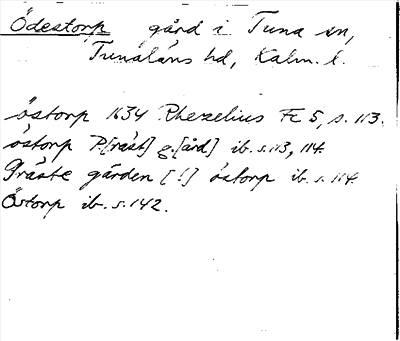 Ödestorp gård i Tuna sn,
Tunaläns hd, Kalm. l.
östorp 1634 Rhezelius Fc 5, s. 113.
östorp P.[räst] g.[ård] ib. s. 113, 114.
Präste gården [!] östorp ib. s. 114.
Östorp ib. s. 142.